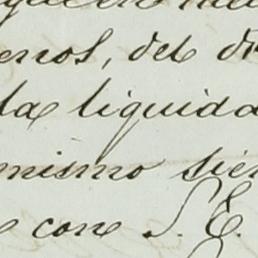 enos, del di
la liquida
mismo sien
e con S. E.